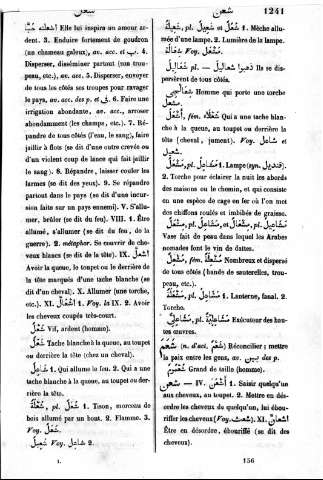 شعل
شعن
1241
أشعلته Elle lui inspira un amour ardent. 3. Enduire fortement de goudron
(un chameau galeux), av. acc. et ب. 4.
Disperser, disséminer partout (son troupeau,
etc.), av. acc. 5. Disperser, envoyer
de tous les côtés ses troupes pour ravager
le pays, av. acc. des p. et في. 6. Faire une
irrigation abondante, av. acc., arroser
abondamment (les champs, etc.). 7. Répandre
de tous côtés (l'eau, le sang), faire
jaillir à flots (se dit d'une outre crevée ou
d'un violent coup de lance qui fait jaillir
le sang). 8. Répandre, laisser couler les
larmes (se dit des yeux). 9. Se répandre
partout dans le pays (se dit d'une incursion
faite sur un pays ennemi). V. S'allumer,
brûler (se dit du feu). VIII. 1. Être
allumé, s'allumer (se dit du feu, de la
guerre). 2. métaphor. Se couvrir de cheveux
blancs (se dit de la tête). IX. إشعل
Avoir la queue, le toupet ou le derrière de
la tête marqués d'une tache blanche (se
dit d'un cheval). X. Allumer (une torche,
etc.). XI. إشعال 1. Voy. la IX. 2. Avoir
les cheveux coupés très-court.
شعل Vif, ardent (homme).
شعل Tache blanche à la queue, au toupet
ou derrière la tête (chez un cheval).
شاعل 1. Qui allume le feu. 2. Qui a une
tache blanche à la queue, au toupet ou derrière
la tête.
شعلة, pl. شعل 1. Tison, morceau de
bois allumé par un bout. 2. Flamme. 3.
Voy. شعل.
شعيل Voy. شاعل 2.
1.
شعيلة, pl. شعل et شعيل 1. Mèche allumée
d'une lampe. 2. Lumière de la lampe.
شعالة Voy. مشعل.
شعاليل, pl. — ذهبوا شعاليل Ils se dispersèrent
de tous côtés.
Homme qui porte une torche
مشعل.
أشعل, fém. شعلاء Qui a une tache blanche
à la queue, au toupet ou derrière la tête
(cheval, jument). Voy. شاعل et
شعيل.
مشعل, pl. مشاعل 1. Lampe (syn. قنديل).
2. Torche pour éclairer la nuit les abords
des maisons ou le chemin, et qui consiste
en une espèce de cage en fer où l'on met
des chiffons roulés et imbibés de graisse.
Vase fait de peau dans lequel les Arabes
nomades font le vin de dattes.
مشعلة, fém. Nombreux et dispersé
de tous côtés (bande de sauterelles, troupeau,
etc.).
مشعلة, pl. مشاعل 1. Lanterne, fanal. 2.
Torche.
مشاعلي, pl. مشاعلية Exécuteur des hautes
œuvres.
شعم (n. d'act. شعم) Réconcilier; mettre
la paix entre les gens, av. بين des p.
شعموم Grand de taille (homme).
شعن — IV. أشعن 1. Saisir quelqu'un
aux cheveux, au toupet. 2. Mettre en désordre
les cheveux du quelqu'un, lui ébouriffer
les cheveux (Voy. شعث). XI. إشعان
Être en désordre, ébouriffé (se dit des
cheveux).
156